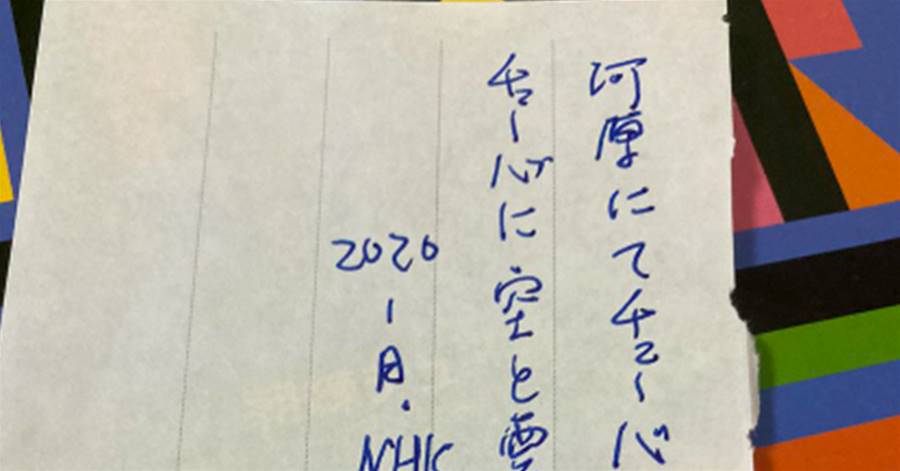 河原にてチューバ
チューバに空と雲
2020
1月.
NHK